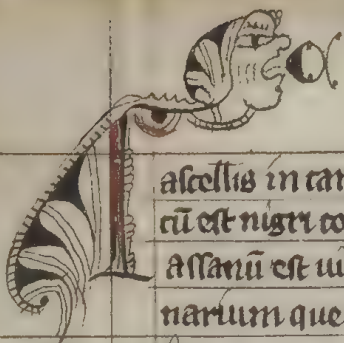 I
ascellis in car
cū est nigri co
assanū est ui
narium que